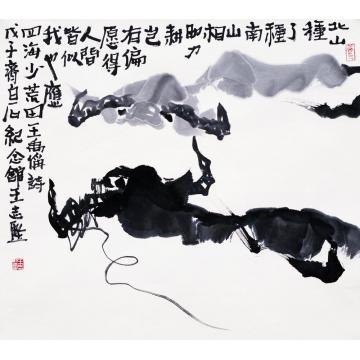 北山
種
了
種
南
山
相
助力
耕
岂
右偏
愿得
人間
皆似
我也應
四海少荒田王禹偁詩
戊子齊白石紀念館王志堅